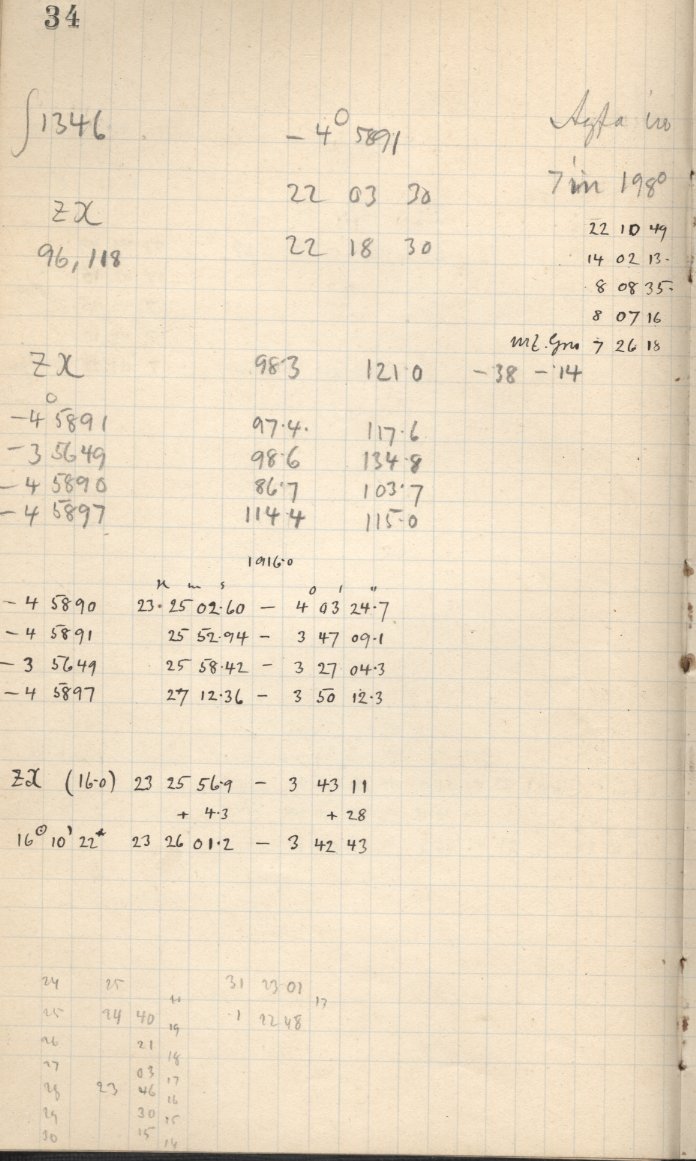 34
∫1346 -4° 5891 Agfa iso
7 in 1980
ZX 22 03 30
96, 118 22 18 30
22 10 49
14 02 13
8 08 35
8 07 16
mt. Gru 7 26 18
ZX 98.3 121.0 -38 -14
-4° 5891 97.4 117.6
-3 5649 98.6 134.8
-4 5890 86.7 103.7
-4 5897 114.4 115.0
1916.0
H m s ° ' "
-4 5890 23.25 02.60 - 4 03 24.7
-4 5891 25 52.94 - 3 47 09.1
-3 5649 25 58.42 - 3 27 04.3
-4 5897 27 12.36 - 3 50 12.3
ZX (16.0) 23 25 56.9 - 3 43 11
+ 4.3 + 28
16° 10' 22" 23 26 01.2 - 3 42 43
24 25 31 23 01
25 24 40 19 1 22 48 13
26 21 18
27 03 17
28 23 46 16
29 30 15
30 15 14